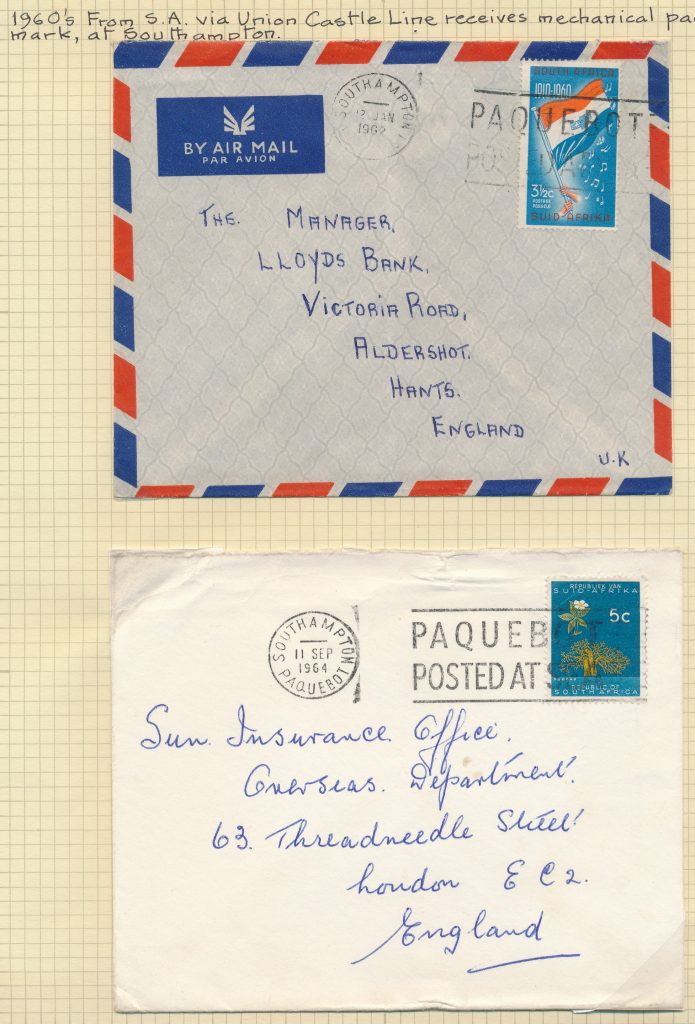 1960's From S.A. via Union Castle Line receives mechanical
mark, at Southampton.
BY AIR MAIL
PAR AVION
SOUTHAMPTON
12 JAN
1962
SOUTH AFRICA
1910-1960
PAQUEBOT
3½c
POSTAGE
POSSEËL
SUID-AFRIKA
THE. MANAGER,
LLOYDS BANK,
VICTORIA ROAD,
ALDERSHOT.
HANTS.
ENGLAND
U.K
SOUTHAMPTON
11 SEP
1964
PAQUEBOT
PAQUEBOT
POSTED AT S
REPUBLIEK VAN
SUID-AFRIKA
5c
REPUBLIC OF
SOUTH AFRICA
Sun Insurance Office.
Overseas. Department.
63. Threadneedle Street
London E C 2.
England